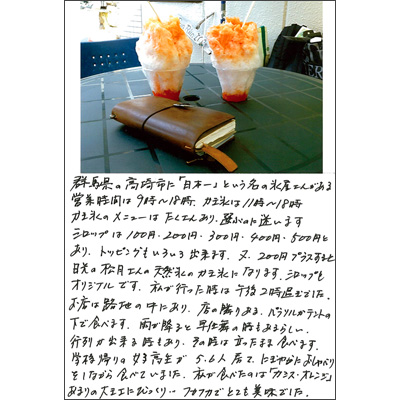 群馬県の高崎市に「日本一」という名の氷屋さんがある
営業時間は9時〜18時. カキ氷は11時〜18時
カキ氷のメニューはたくさんあり、選ぶのに迷います
シロップは100円・200円・300円・400円・500円と
あり、トッピングもいろいろ出来ます. 又、200円プラスすると
日光の松月さんの天然氷のカキ氷になります. シロップも
オリジナルです. 私が行った時は午後2時過ぎでした.
お店は路地の中にあり、店の隣りある、パラソルがテントの
下で食べます. 雨が降ると早仕舞の時もあるらしい.
行列が出来る時もあり、その時は立ったまま食べます.
学校帰りの女子高生が5.6人居て、にぎやかにおしゃべり
をしながら食べていました. 私が食べたのは「カシス・オレンジ」
あまりの大きさにびっくり… フカフカでとても美味でした.